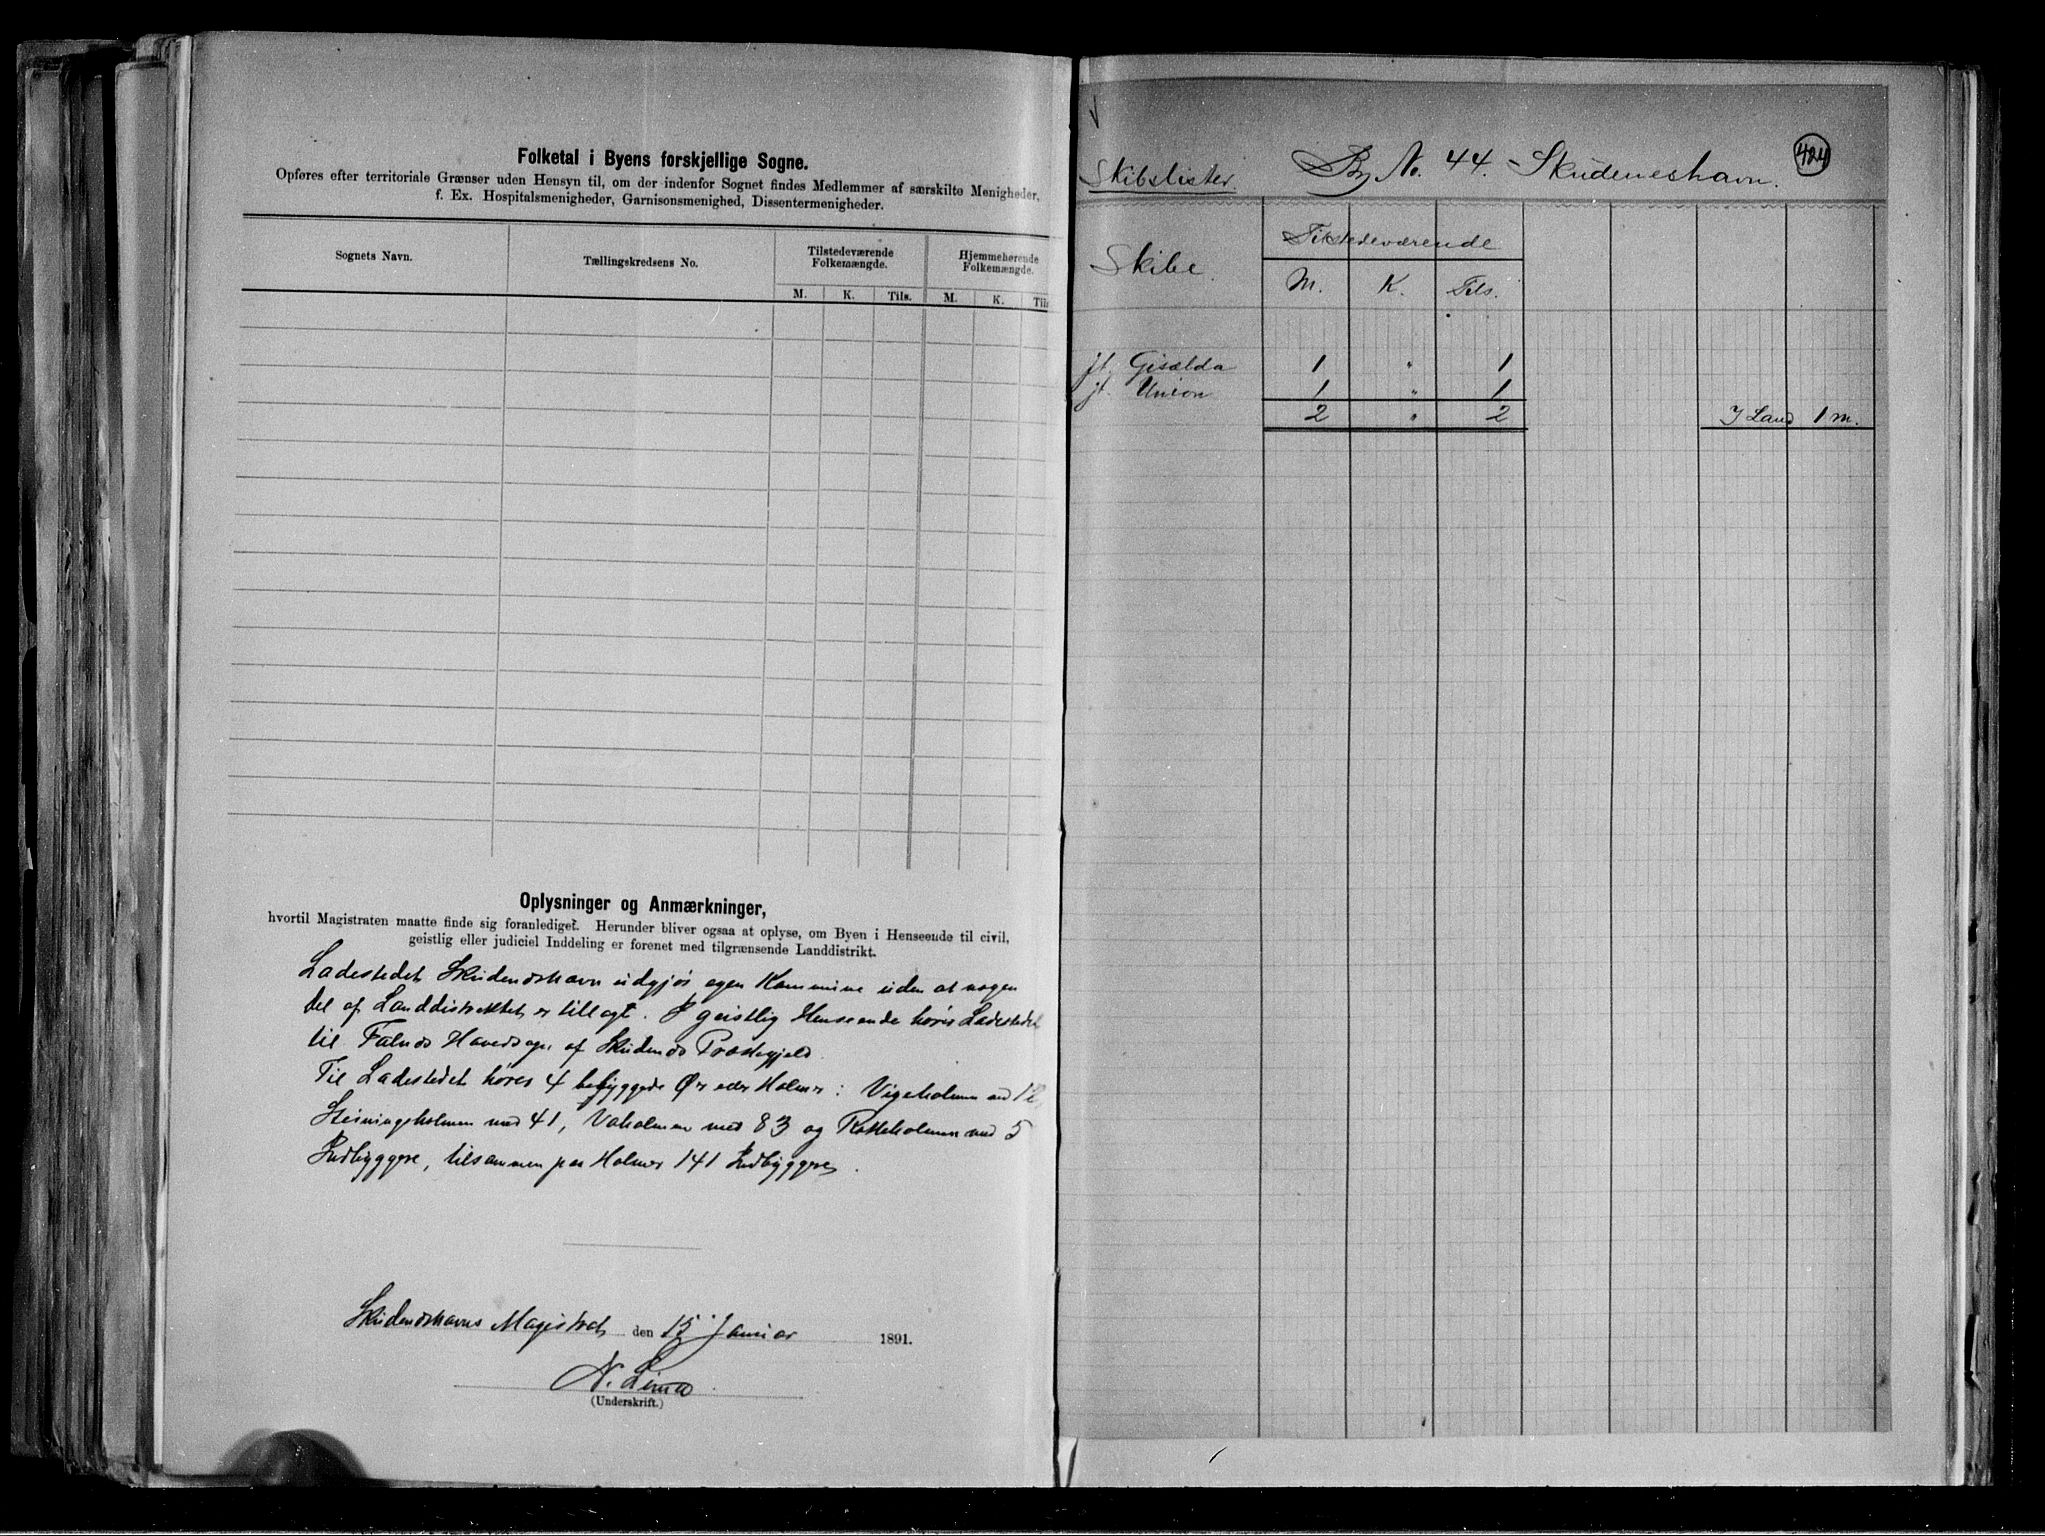 Folketal i Byens forskjellige Sogne.
Opføres efter territoriale Grænser uden Hensyn til, om der indenfor Sognet findes Medlemmer af særskilte Menigheder,
f. Ex. Hospitalsmenigheder, Garnisonsmenighed, Dissentermenigheder.
Sognets Navn. Tællingskredsens No. Tilstedeværende Folkemængde. Hjemmehørende Folkemængde.
M. K. Tils. M. K. Tils
Oplysninger og Anmærkninger,
hvortil Magistraten maatte finde sig foranlediget. Herunder bliver ogsaa at oplyse, om Byen i Henseende til civil,
geistlig eller judiciel Inddeling er forenet med tilgrænsende Landdistrikt.
Ladestedet Skudeneshavn udgjør egen Kommune uden at nogen
del af Landdistriktet er tillagt. I geistlig Henseende hører Ladestedet
til Falnes Hovedsogn af Skudenes Præstegjeld.
Til Ladestedet hører 4 bebyggede Øer eller Holmer: Vigeholmen med 12,
Steiningsholmen med 41, Vaholmen med 83 og Rotteholmen med 5
Indbyggere, tilsammen paa Holmer 141 Indbyggere.
Skudeneshavns Magistrat den 15 Januar 1891.
N.
(Underskrift.)
424
Skibslister. By No. 44. Skudeneshavn.
Skibe. Tilstedeværende
M. K. Tils.
jt. Giselda 1 " 1
jt. Union 1 " 1
2 " 2 I Land 1 m.